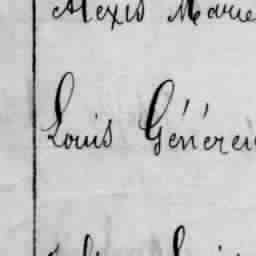 Alexis Marie
Louis Génereu